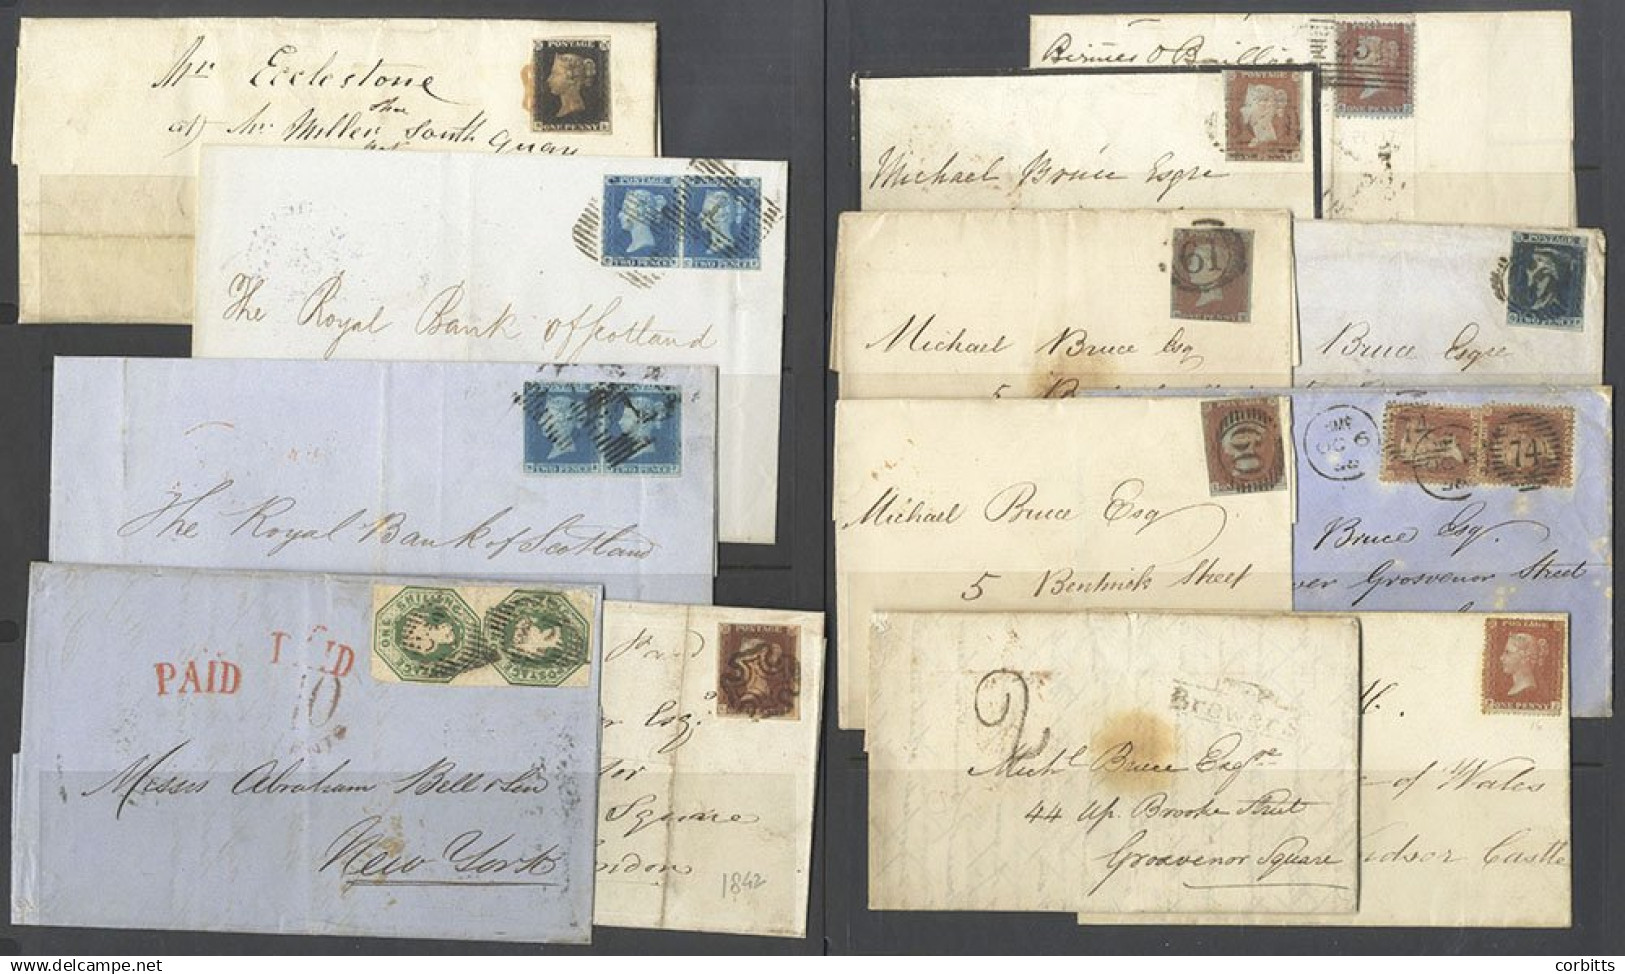 Mr Ecclestone
at Mr Miller South Quay
POSTAGE
ONE PENNY
POSTAGE POSTAGE
TWO PENCE TWO PENCE
The Royal Bank of Scotland
TWO PENCE TWO PENCE
The Royal Bank of Scotland
ONE SHILLING
POSTAGE
PAID
PAID
10
Messrs Abraham Bell & Son
New York
POSTAGE
Esq
Square
London
1842
45
POSTAGE
ONE PENNY
Michael Bruce Esqre
61
ONE PENNY
Michael Bruce Esq
5
POSTAGE
TWO PENCE
Bruce Esqre
60
Michael Bruce Esq
5 Bentinck Street
OC 6
74
74
Bruce Esq
Grosvenor Street
2
Brewer
Michl Bruce Esqre
44 Up. Brooke Street
Grosvenor Square
POSTAGE
ONE PENNY
of Wales
Castle
corbitts